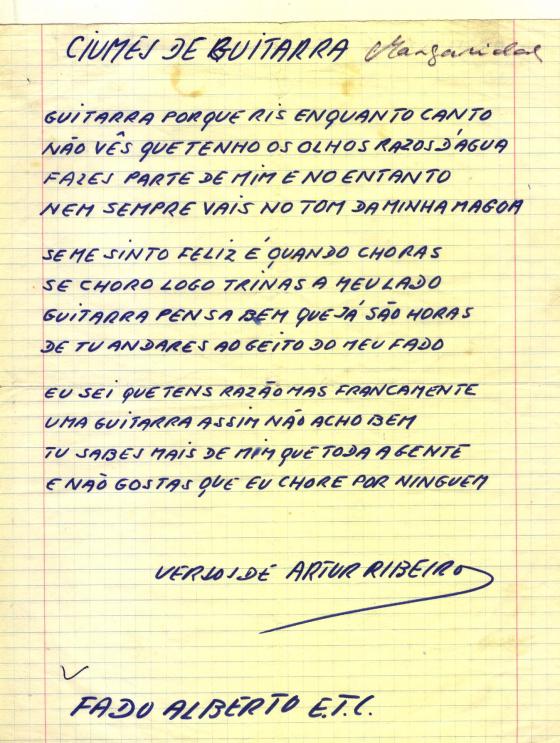 CIUMES DE GUITARRA Margaridas
GUITARRA PORQUE RIS ENQUANTO CANTO
NÃO VÊS QUE TENHO OS OLHOS RAZOS D'ÁGUA
FAZES PARTE DE MIM E NO ENTANTO
NEM SEMPRE VAIS NO TOM DA MINHA MAGOA
SE ME SINTO FELIZ É QUANDO CHORAS
SE CHORO LOGO TRINAS A MEU LADO
GUITARRA PENSA BEM QUE JÁ SÃO HORAS
DE TU ANDARES AO GEITO DO MEU FADO
EU SEI QUE TENS RAZÃO MAS FRANCAMENTE
UMA GUITARRA ASSIM NÃO ACHO BEM
TU SABES MAIS DE MIM QUE TODA A GENTE
E NÃO GOSTAS QUE EU CHORE POR NINGUEM
VERSOS DE ARTUR RIBEIRO
FADO ALBERTO E.T.C.